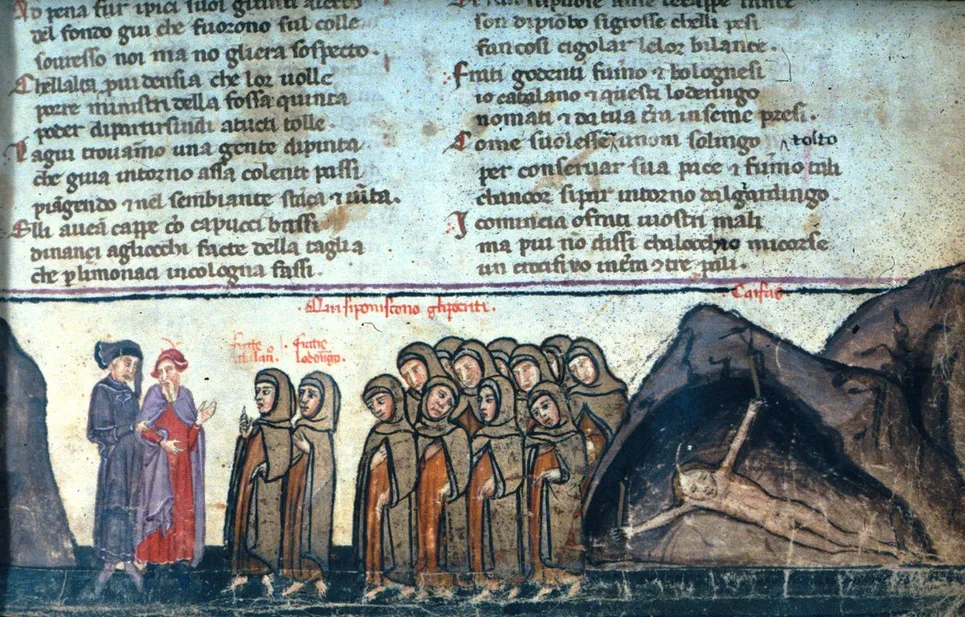 del fondo giu che fuorono sul colle
souresso noi ma no gliera sospecto.
Chellalta puidensia che lor uolle
porre ministri della fossa quinta
poder dipartirsindi atucti tolle.
Lagiu trouamo una gente dipinta
che giua intorno assa colenti passi
piangendo et nel sembiante staca et uita.
Elli auea cappe co capucci bassi
dinanci agliocchi facte della taglia
che p limonaci incologna fassi.
fan cosi cigolar lelor bilance.
Frati godenti fumo et bolognesi
io catalano et questi loderingo
nomati et da tua tra inseme presi.
Come suolesser unuom solingo tolto
per conseruar sua pace et fumo tali
chancor sipar intorno dalgardingo.
I comincia o frati iuostri mali
ma piu no dissi chalocchio micorse
un crucifixo in tra 9 tre pali.
Qui siponiscono glipocriti.
Caifas
frate
frate
lodengo.